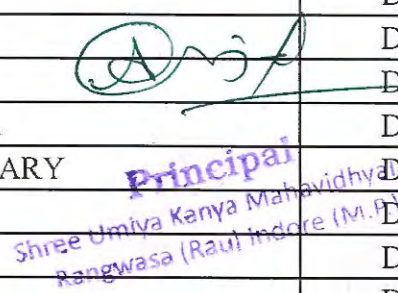 D
D
D
D
ARY D
Principal
Shree Umiya Kanya Mahavidhyal
D
Rangwasa (Rau) Indore (M.P.)
D